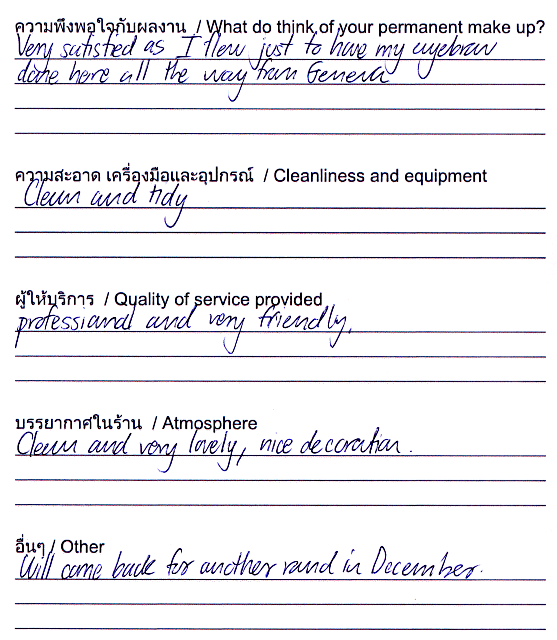 ความพึงพอใจกับผลงาน / What do think of your permanent make up?
Very satisfied as I flew just to have my eyebrow
done here all the way from Geneva
ความสะอาด เครื่องมือและอุปกรณ์ / Cleanliness and equipment
Clean and tidy
ผู้ให้บริการ / Quality of service provided
professional and very friendly,
บรรยากาศในร้าน / Atmosphere
Clean and very lovely, nice decoration.
อื่นๆ / Other
Will come back for another round in December.